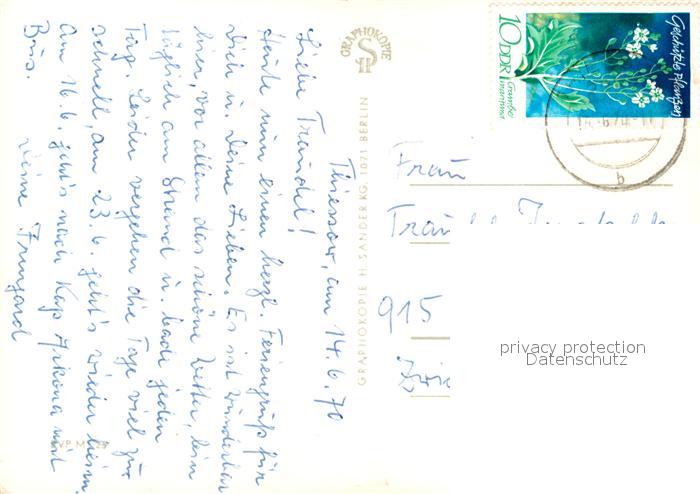 Thiessow, am 14.6.70
Liebe Traudel!
Heute nun einen herzl. Feriengruß für
Dich u. Deine Lieben. Es ist wunderbar
hier, vor allem das schöne Wetter, bin
täglich am Strand u. bade jeden
Tag. Leider vergehen die Tage viel zu
schnell, am 23.6. geht's wieder heim.
Am 16.6. geht's nach Kap Arkona mit
Bus.
Deine Irmgard
GRAPHOKOPIE
H S
GRAPHOKOPIE H. SANDER KG. 1071 BERLIN
Geschützte Pflanzen
10 DDR
Crambe
maritima
b
Frau
915
privacy protection
Datenschutz